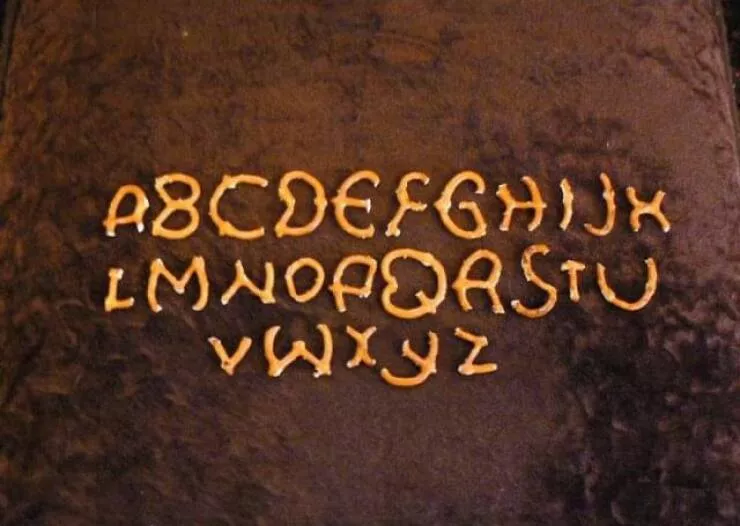 ABCDEFGHIJK
LMNOPQRSTU
VWXYZ